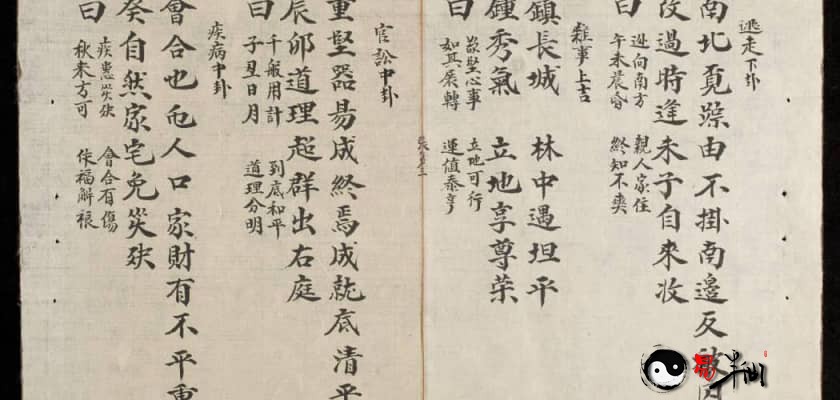 逃走下卦
南北覓踪由不掛南邊反被
改過時逢未子自來收
曰
逃向南方 親人家住
午未晨昏 終知不爽
難事上吉
鎮長城 林中遇坦平
鍾秀氣 立地享尊荣
曰
堅心事 立地可行
如其展轉 運值泰亨
官訟中卦
重堅器易成終焉成就底清平
辰卯道理超群出右庭
曰
千般用計 到底和平
子丑日月 道理分明
疾病中卦
會合也 人口 家財有不平重
癸自然家宅免災殃
曰
疾患災殃 會合有傷
秋来方可 作福解禳